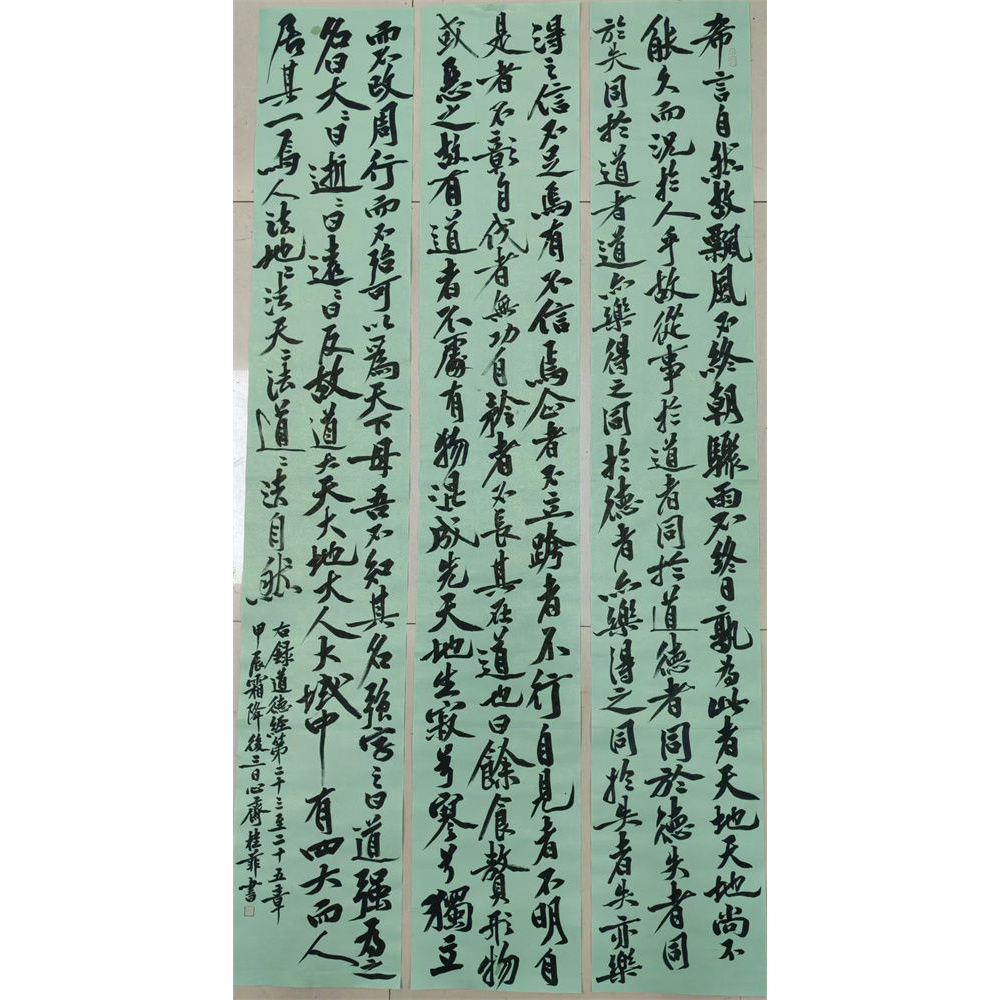 希言自然故飄風不終朝驟雨不終日孰為此者天地天地尚不
能久而況於人乎故從事於道者同於道德者同於德失者同
於失同於道者道亦樂得之同於德者亦樂得之同於失者失亦樂
得之信不足焉有不信焉企者不立跨者不行自見者不明自
是者不彰自伐者無功自矜者不長其在道也曰餘食贅形物
或惡之故有道者不處有物混成先天地生寂兮寥兮獨立
而不改周行而不殆可以為天下母吾不知其名強字之曰道強為之
名曰大〻曰逝〻曰遠〻曰反故道大天大地大人大域中有四大而人
居其一焉人法地〻法天〻法道〻法自然
右錄道德經第二十三至二十五章
甲辰霜降後三日心齋桂菲書